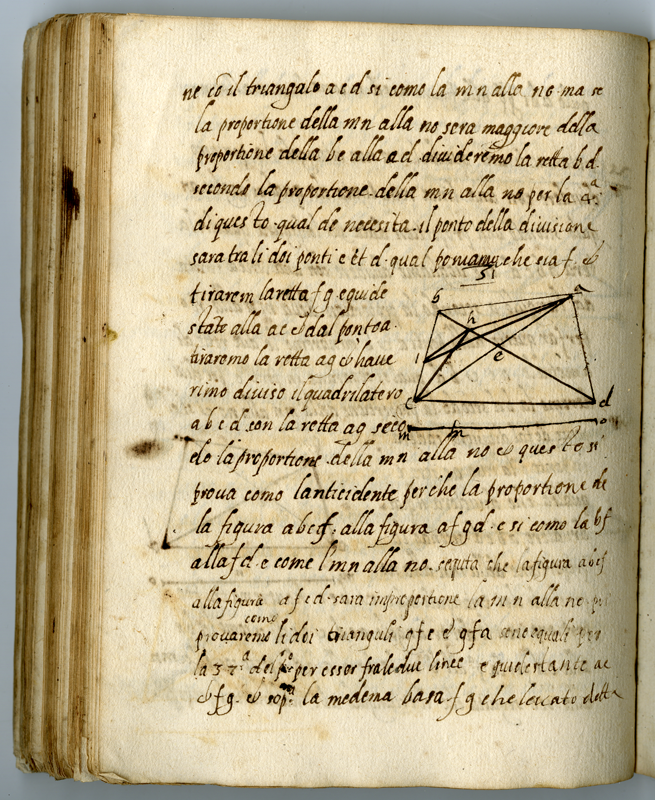 ne cō il triangalo a c d si como la m n alla no ma se
la proportione della mn alla no sera maggiore della
proportione della be alla ed divideremo la retta b d
secondo la proportione della m n alla no per la
di questo qual de necesita il ponto della divisione
sara tra li doi ponti e et d qual poniamo che sia f. &
51
tirarem la retta f g equide
state alla ac & dal ponto a
tiraremo la retta ag & have
rimo diviso il quadrilatero
a b c d con la retta ag seco
b
a
h
i
e
c
d
m
n
o
do la proportione della mn alla no & questo si
prova como lanticidente perche la proportione de
la figura abcf. alla figura afgd. e si como la bf
alla fd. e come l mn alla no. sequta che la figura abcf
alla figura afcd. sara in proportione la m n alla no
come
provaremo li doi trianguli gfc & gfa sono equali per
la 37.ª del p.º per esser fra le due linee equidestante ac
& fg. & sop.ª la medema basa f g che levato